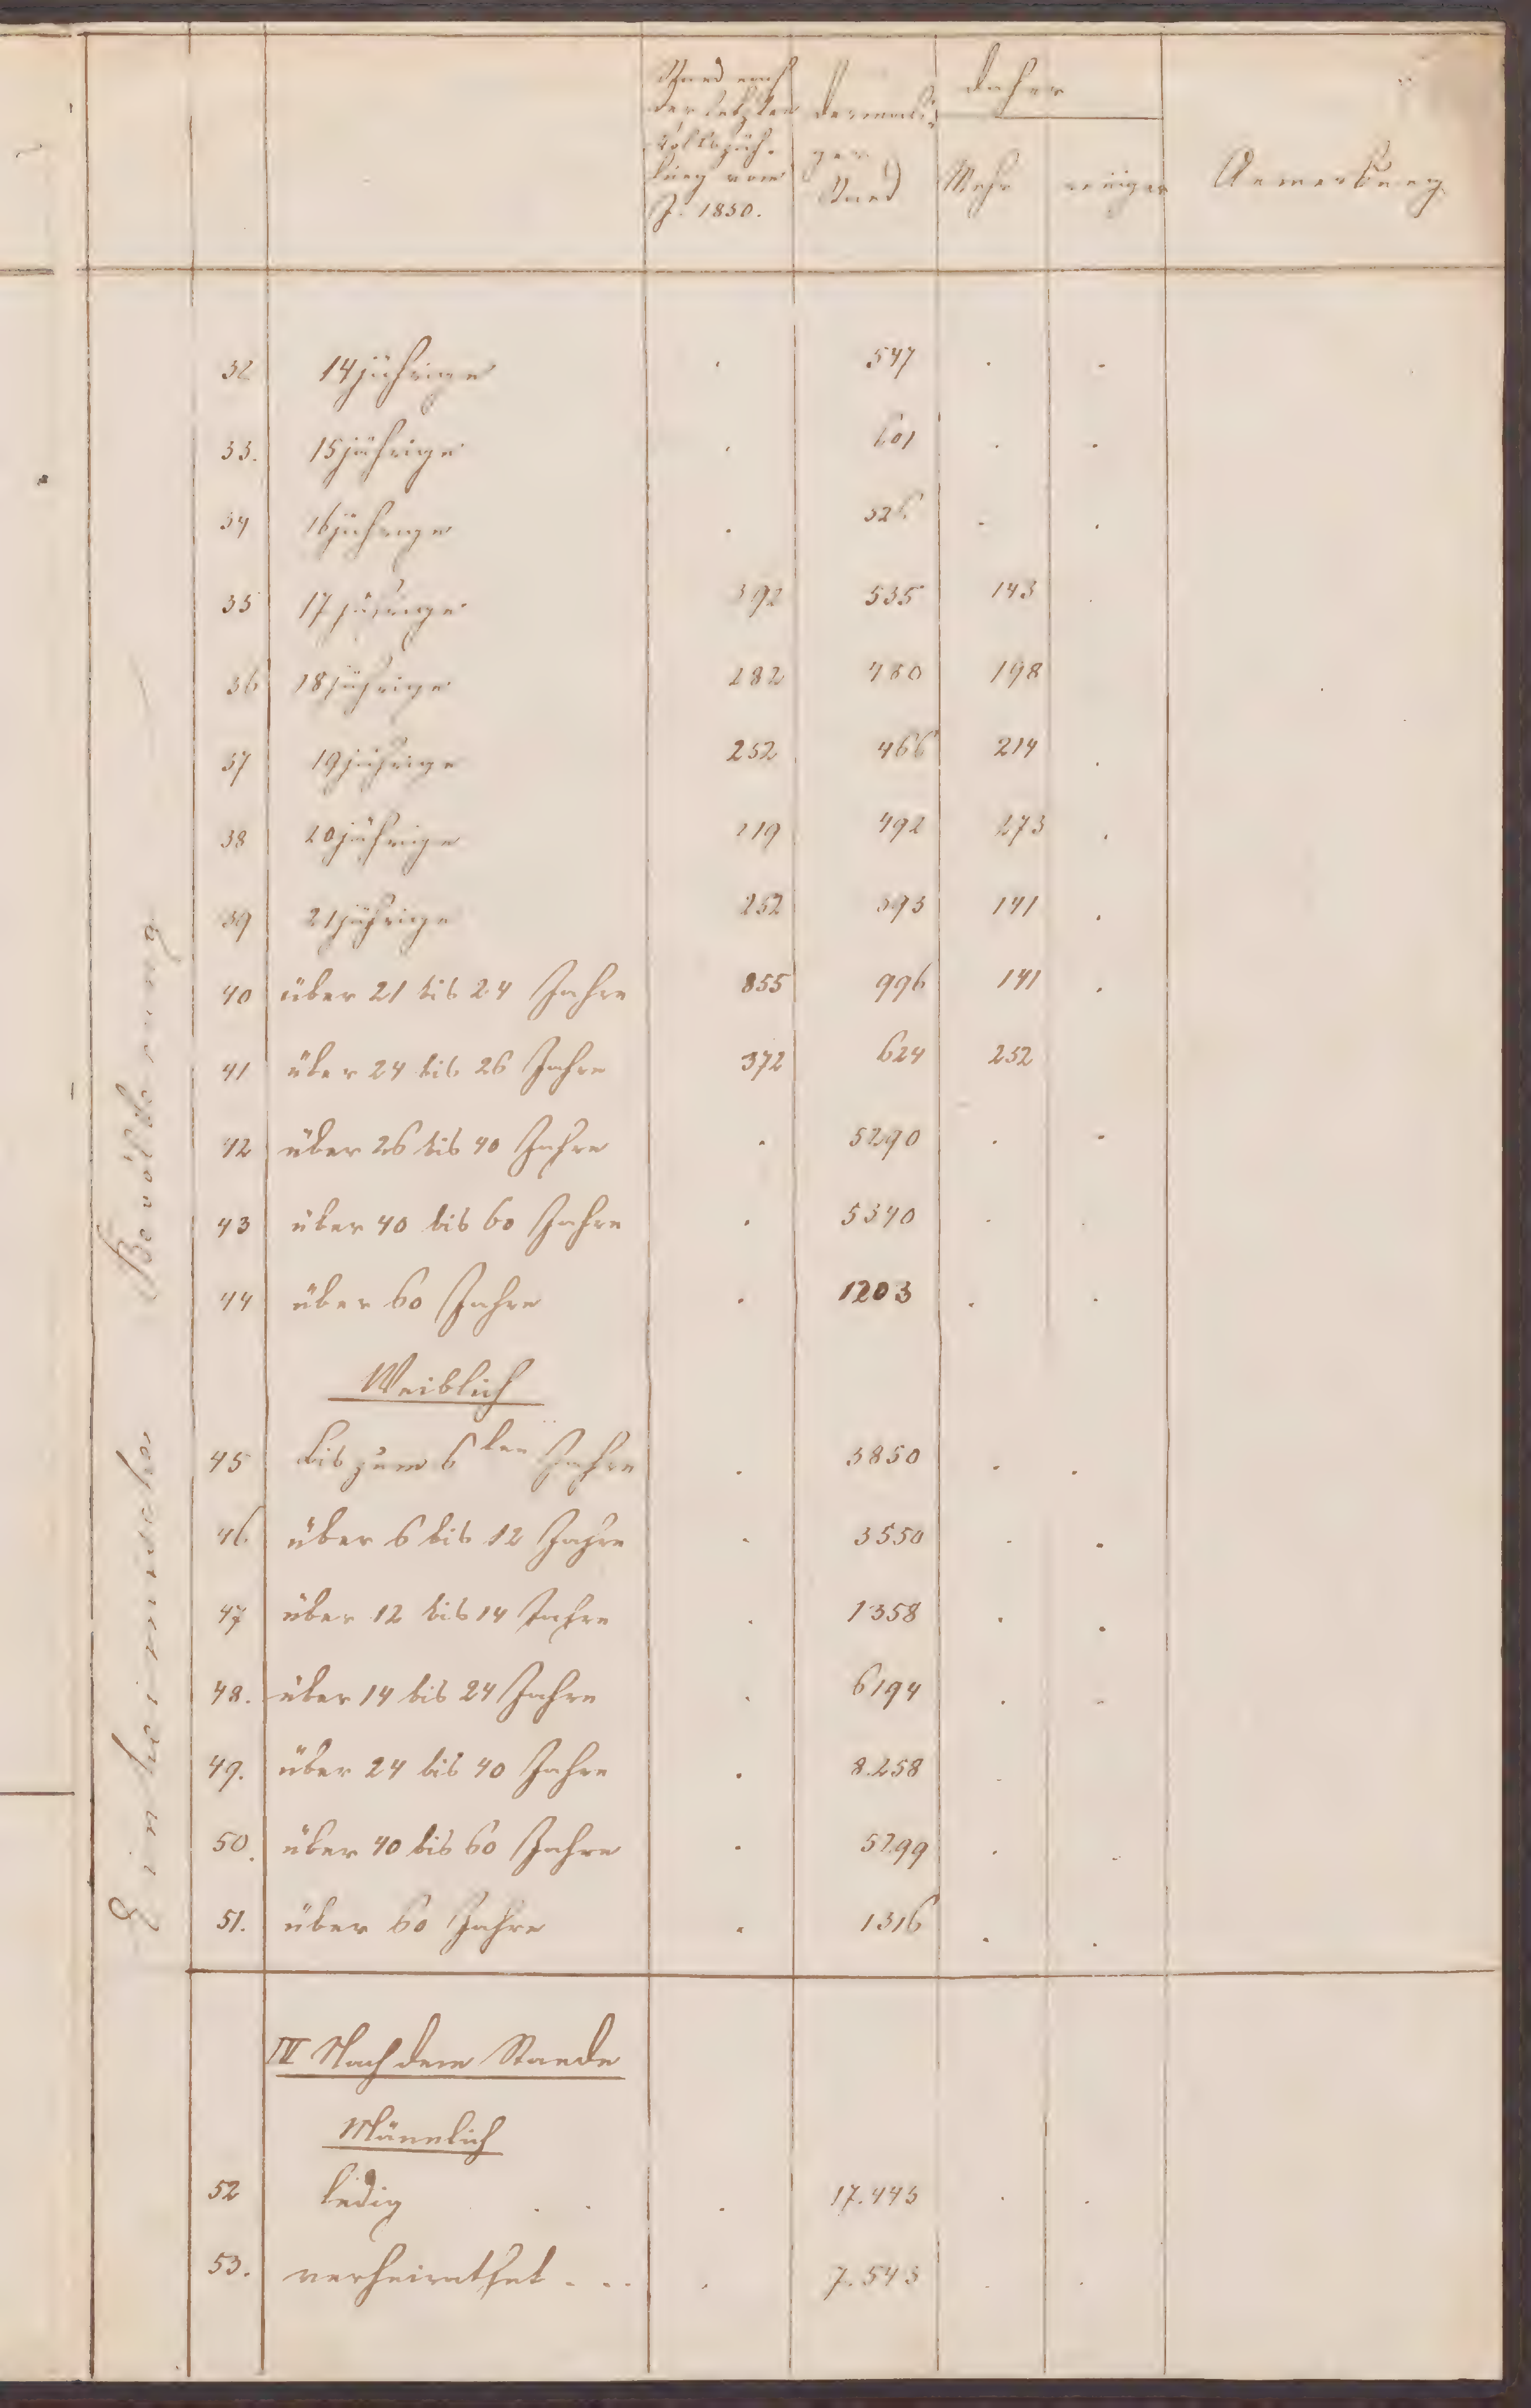 Stand nach der letzten Volkszäh- lung vom J. 1850.
Dermali- ger Stand
daher
Mehr weniger
Anmerkung
Einheimische Bevölkerung
32 14jährige . 547 . .
33. 15jährige . 601 . .
34 16jährige . 526 . .
35 17jährige 392 535 143 .
36 18jährige 282 480 198
37 19jährige 252 466 214 .
38 20jährige 219 492 273 .
39 21jährige 252 393 141 .
40 über 21 bis 24 Jahre 855 996 141 .
41 über 24 bis 26 Jahre 372 624 252
42 über 26 bis 40 Jahre . 5290 . .
43 über 40 bis 60 Jahre . 5340 . .
44 über 60 Jahre . 1203 . .
Weiblich
45 bis zum 6ten Jahre . 3850 . .
46. über 6 bis 12 Jahre . 3550 . .
47 über 12 bis 14 Jahre . 1358 . .
48. über 14 bis 24 Jahre . 6194 . .
49. über 24 bis 40 Jahre . 8.258 .
50. über 40 bis 60 Jahre . 5299 . .
51. über 60 Jahre . 1316 . .
IV Nach dem Stande
Männlich
52 ledig . . . 17.443 . .
53. verheirathet . . . . 7.543 . .